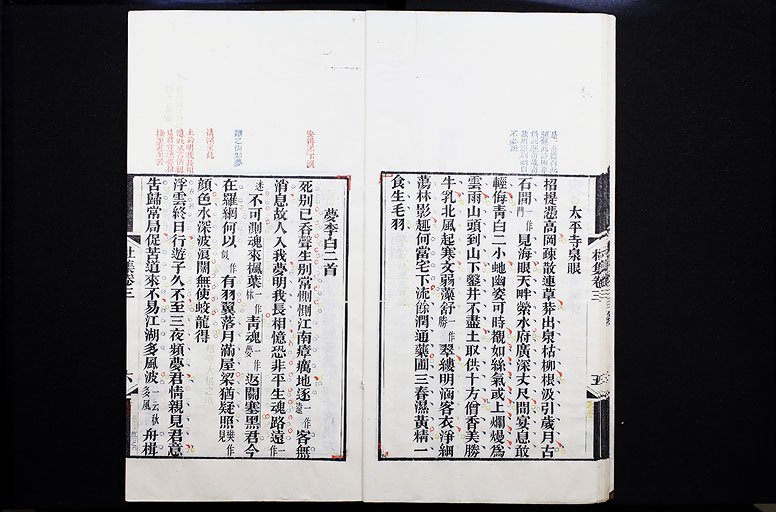 太平寺泉眼
招提憑高岡疎散連草莽出泉枯柳根汲引歲月古
石間見海眼天畔縈水府廣深丈尺間宴息敢
輕侮青白二小蛇幽姿可時覩如絲氣或上爛熳爲
雲雨山頭到山下鑿井不盡土取供十方僧香美勝
牛乳北風起寒文弱藻舒翠縷明涵客衣淨細
蕩林影趣何當宅下流餘潤通藥圃三春濕黃精一
食生毛羽
杜集卷三
五
夢李白二首
死别已吞聲生别常惻惻江南瘴癘地逐一作遠客無
消息故人入我夢明我長相憶恐非平生魂路遠一作
迷不可測魂來楓葉一作林青魂一作夢返關塞黑君今
在羅網何以一作似有羽翼落月滿屋梁猶疑照一作見
顔色水深波浪闊無使蛟龍得
浮雲終日行遊子久不至三夜頻夢君情親見君意
告歸常局促苦道來不易江湖多風波一云秋多風舟楫
杜集卷三
六